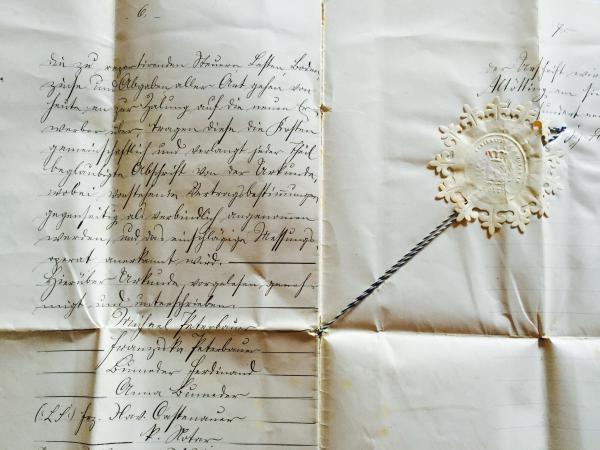 6.
die zu repartirenden Steuern Lasten, Boden-
zinse und Abgaben aller Art gehen von
heute an zur Zalung auf die neuen Er-
werber über, tragen diese die Kosten
gemeinschaftlich und verlangt jeder Theil
beglaubigte Abschrift von der Urkunde,
wobei vorstehende Vertragsbestimmungen
gegenseitig als verbindlich angenommen
werden, und das einschlägige Messungs-
operat anerkannt wird.
Hierüber Urkunde, vorgelesen, geneh-
migt und unterschrieben.
Michael Peterbauer
Franziska Peterbauer
Bumeder Ferdinand
Anna Bumeder
(:L.S.:) gez. Xav. Castenauer
k. Notar
7.
der Urschrift
Altötting am